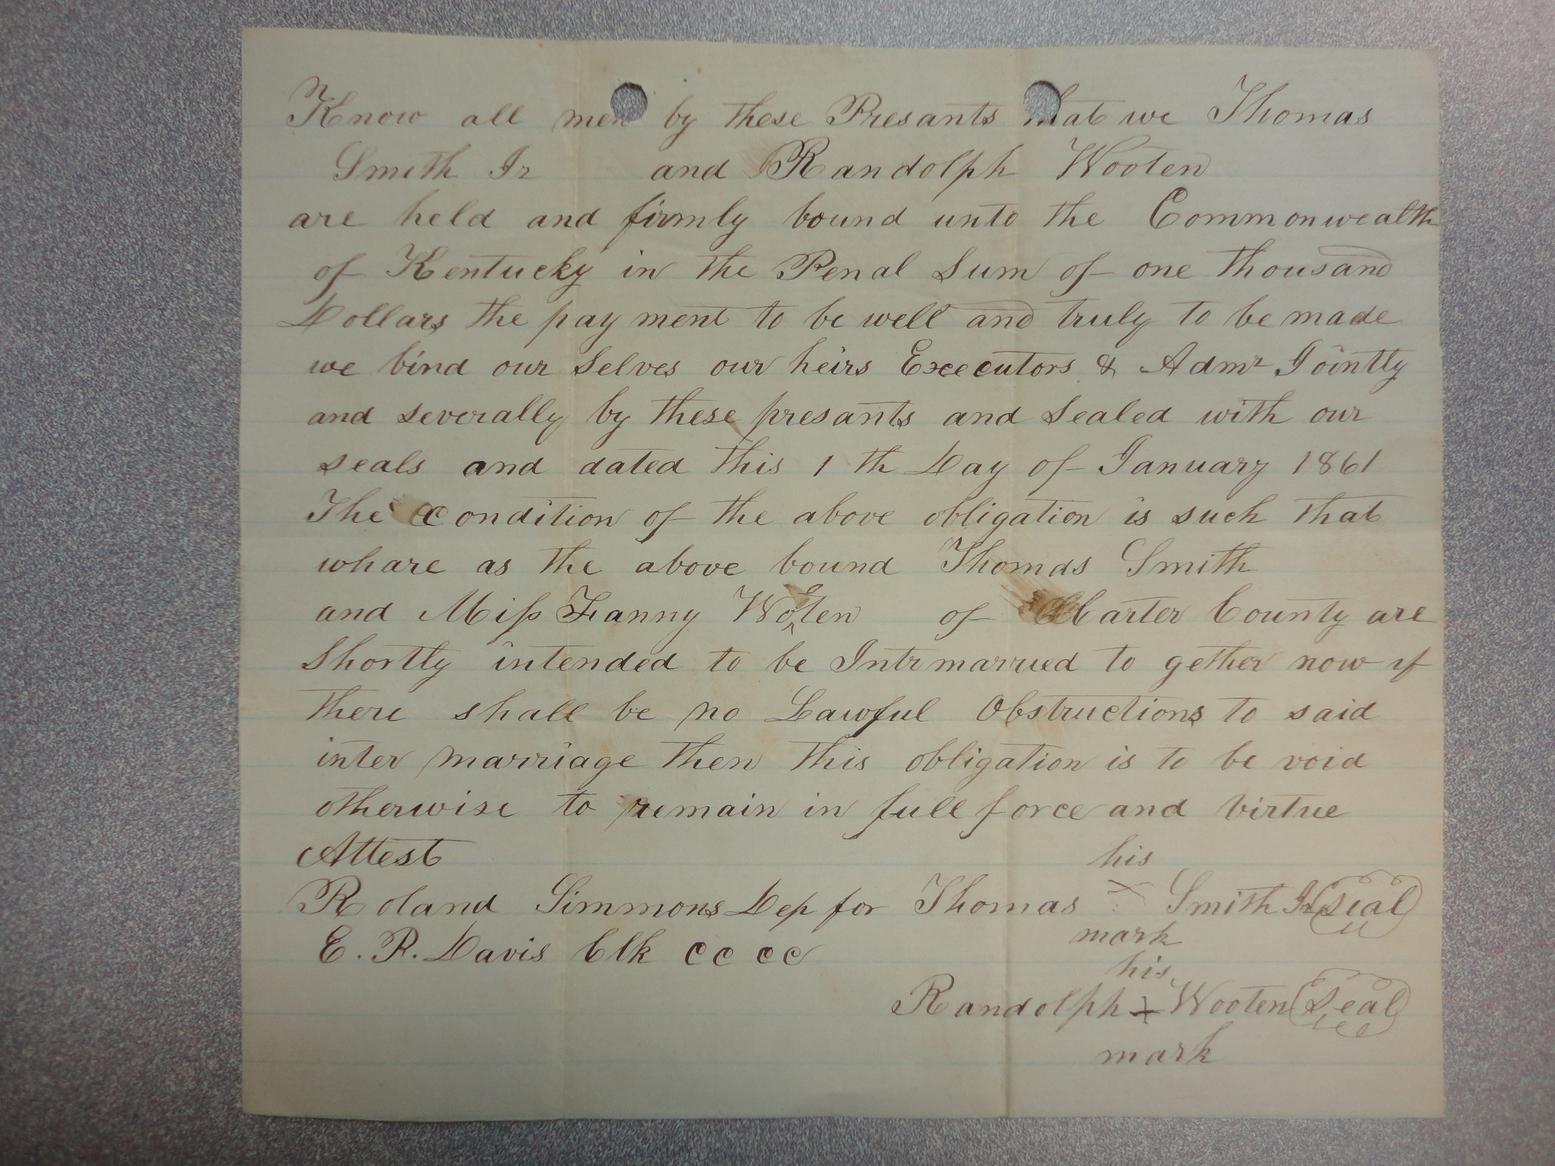 Know all men by these Presants that we Thomas
Smith Jr and Randolph Wooten
are held and firmly bound unto the Commonwealth
of Kentucky in the Penal Sum of one thousand
Dollars the payment to be well and truly to be made
we bind our Selves our heirs Executors & Admr Jointly
and severally by these presants and Sealed with our
seals and dated this 1 th Day of January 1861
The condition of the above obligation is such that
whare as the above bound Thomas Smith
and Miss Fanny Wooten of Carter County are
Shortly intended to be Intrmarried to gether now if
there shall be no Lawful Obstructions to said
inter marriage then this obligation is to be void
otherwise to remain in full force and virtue
Attest his
Roland Simmons Dep for Thomas X Smith Jr Seal
mark
E. P. Davis Clk CC CC
his
Randolph X Wooten Seal
mark